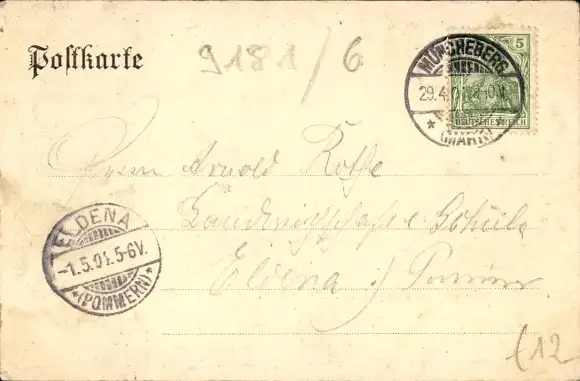 Postkarte
9181/6
5
MÜNCHEBERG
29.4.
(MARK)
DEUTSCHES REICH
Herrn Arnold Rothe
Landwirthschafts. Schule
Eldena i/ Pommern
ELDENA
-1.5.01.5-6V.
*(POMMERN)*
(12